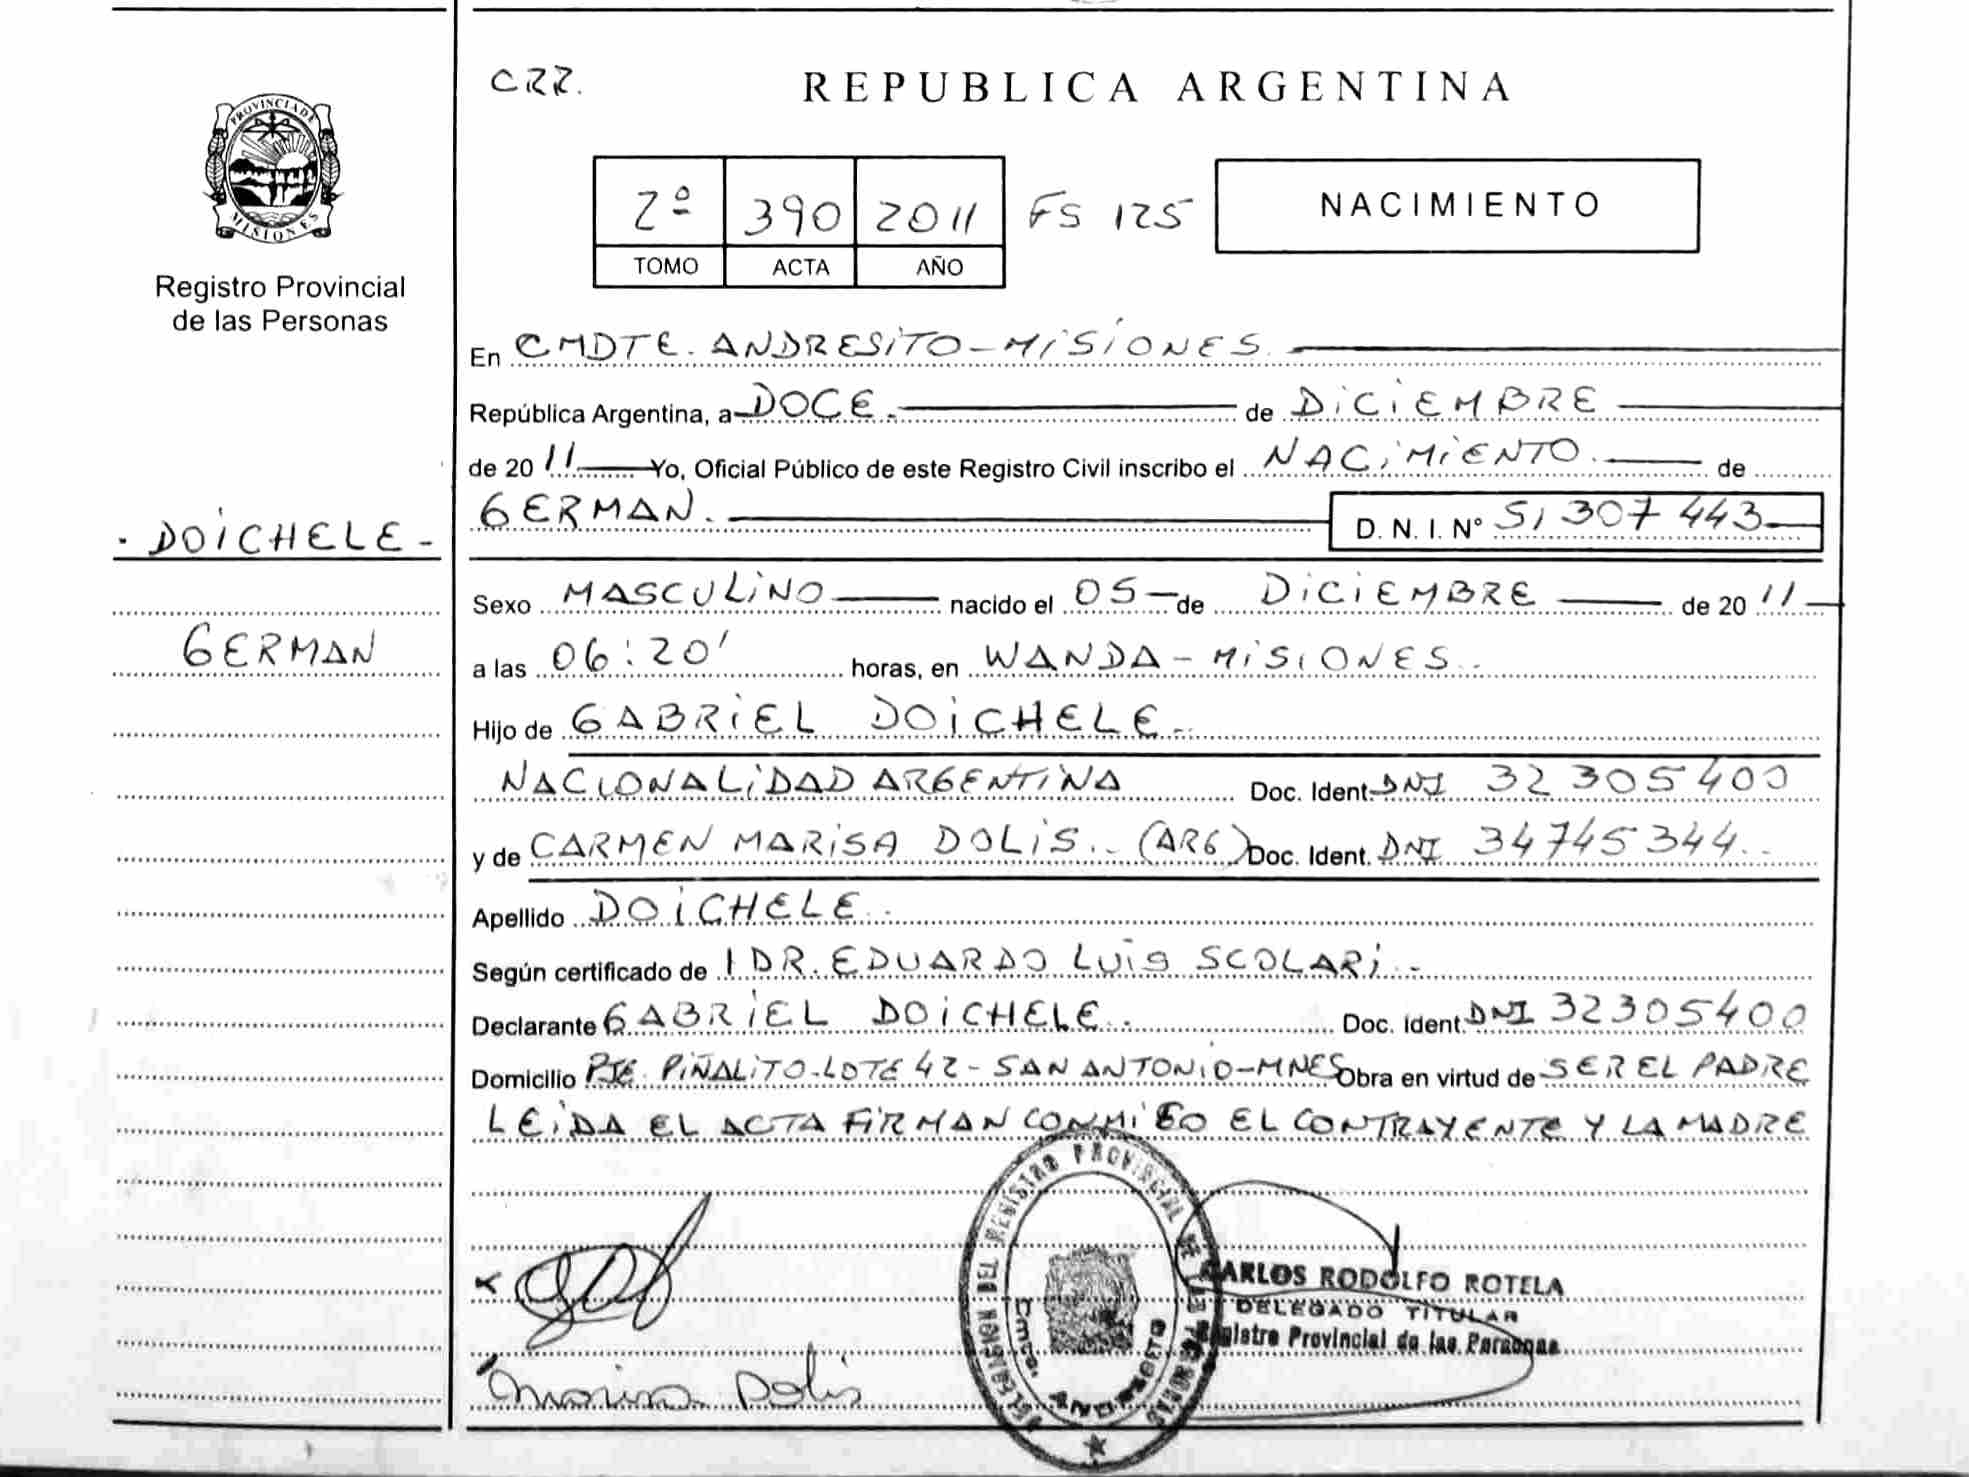 CRR.
REPUBLICA ARGENTINA
PROVINCIA DE
MISIONES
Registro Provincial
de las Personas
2º 390 2011 FS 125
TOMO ACTA AÑO
NACIMIENTO
En CMDTE. ANDRESITO - MISIONES
República Argentina, a DOCE. de DICIEMBRE
de 20 11 Yo, Oficial Público de este Registro Civil inscribo el NACIMIENTO. de
GERMAN. D. N. I. N° 51 307 443
. DOICHELE -
GERMAN
Sexo MASCULINO nacido el 05 de DICIEMBRE de 20 11
a las 06:20' horas, en WANDA - MISIONES..
Hijo de GABRIEL DOICHELE..
NACIONALIDAD ARGENTINA Doc. Ident. DNI 32 305 400
y de CARMEN MARISA DOLIS.. (ARG) Doc. Ident. DNI 34745344..
Apellido DOICHELE..
Según certificado de DR. EDUARDO LUIS SCOLARI..
Declarante GABRIEL DOICHELE.. Doc. Ident. DNI 32305400
Domicilio PJE. PIÑALITO-LOTE 42 - SAN ANTONIO-MNES Obra en virtud de SER EL PADRE
LEIDA EL ACTA FIRMAN CONMIGO EL CONTRAYENTE Y LA MADRE
DELEGACION DEL REGISTRO PROVINCIAL DE LAS PERSONAS
Cmdte. ANDRESITO
CARLOS RODOLFO ROTELA
DELEGADO TITULAR
Registro Provincial de las Personas
Marisa Dolis